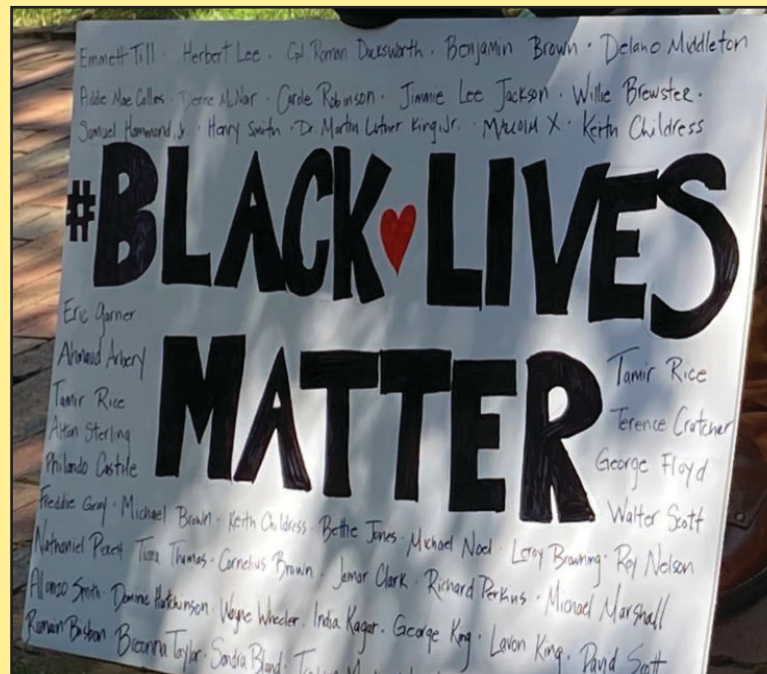 Emmett Till · Herbert Lee · Cpl Roman Ducksworth · Benjamin Brown · Delano Middleton
Addie Mae Collins · Denise McNair · Carole Robinson · Jimmie Lee Jackson · Willie Brewster ·
Samuel Hammond, Jr. · Henry Smith · Dr Martin Luther King Jr. · Malcolm X · Keith Childress
#BLACK LIVES
MATTER
Eric Garner
Ahmaud Arbery
Tamir Rice
Alton Sterling
Philando Castile
Tamir Rice
Terence Crutcher
George Floyd
Walter Scott
Freddie Gray · Michael Brown · Keith Childress · Bettie Jones · Michael Noel · Leroy Browning · Roy Nelson
Nathaniel Tiara Thomas · Cornelius Brown · Jamar Clark · Richard Perkins · Michael Marshall
Alonzo Smith · Dominic Hutchinson · Wayne Wheeler · India Kager · George King · Lavon King · David Scott
Breonna Taylor · Sandra Bland ·